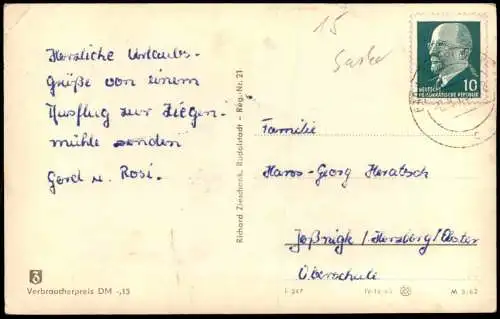 15
Herzliche Urlaubs-
Grüße von einem
Ausflug zur Ziegen-
mühle senden
Gerd u. Rosi.
10
DEUTSCHE
DEMOKRATISCHE REPUBLIK
Familie
Hans-Georg Heratsch
Herzberg/Elster
Oberschule
Richard Zieschank, Rudolstadt - Reg.-Nr. 21
Verbraucherpreis DM -,15
M 5/62